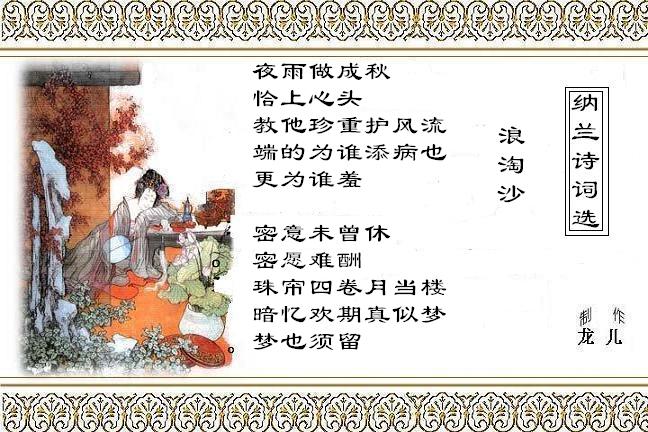 纳兰诗词选
浪淘沙
夜雨做成秋
恰上心头
教他珍重护风流
端的为谁添病也
更为谁羞
密意未曾休
密愿难酬
珠帘四卷月当楼
暗忆欢期真似梦
梦也须留
制作
龙儿